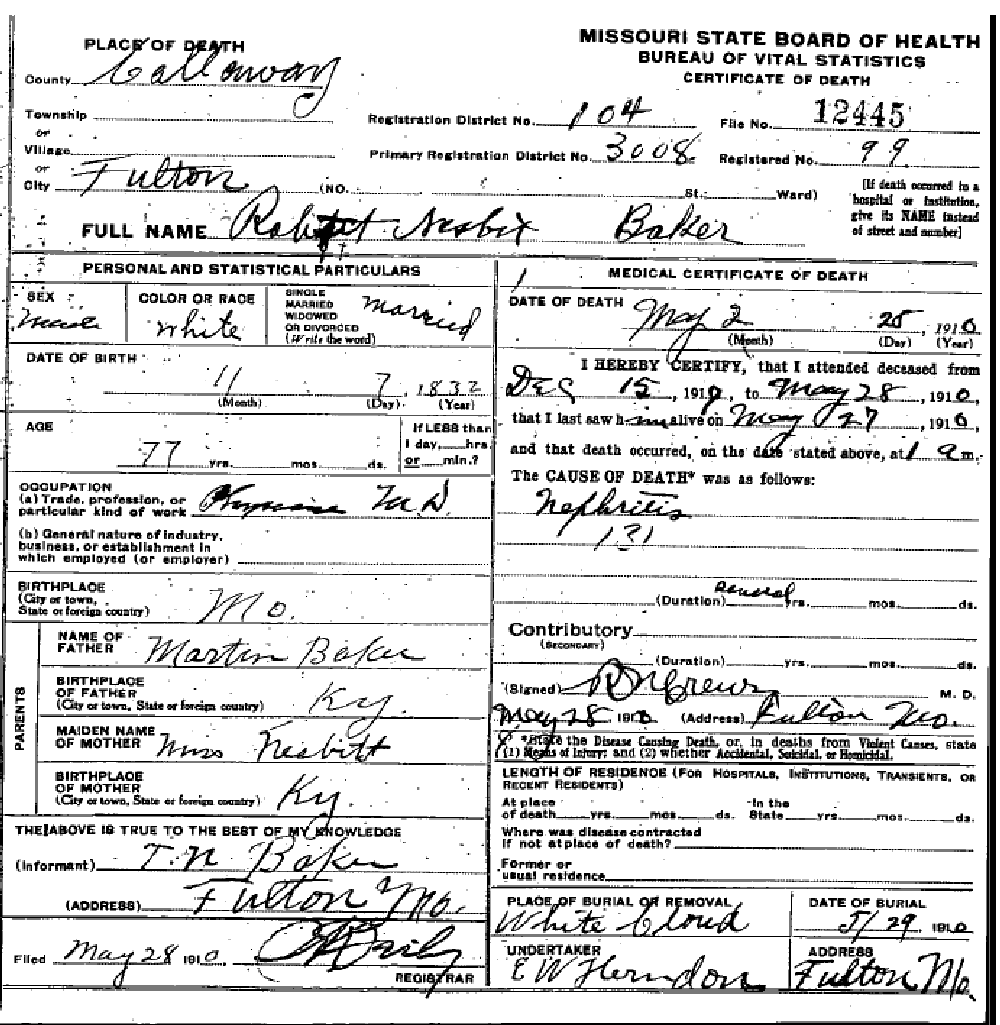 MISSOURI STATE BOARD OF HEALTH
BUREAU OF VITAL STATISTICS
CERTIFICATE OF DEATH
PLACE OF DEATH
County Callaway
Township
or
Village
or
City Fulton (NO. St.; Ward)
Registration District No. 104 File No. 12445
Primary Registration District No. 3008 Registered No. 99
[If death occurred in a
hospital or institution,
give its NAME instead
of street and number]
FULL NAME Robert Nesbit Baker
PERSONAL AND STATISTICAL PARTICULARS
SEX
male
COLOR OR RACE
white
SINGLE
MARRIED
WIDOWED
OR DIVORCED
(Write the word)
married
DATE OF BIRTH
11 7, 1832
(Month) (Day) (Year)
AGE
77 yrs. mos. ds.
If LESS than
1 day, hrs
or min.?
OCCUPATION
(a) Trade, profession, or
particular kind of work Physician M.D.
(b) General nature of industry,
business, or establishment in
which employed (or employer)
BIRTHPLACE
(City or town,
State or foreign country) Mo.
PARENTS
NAME OF
FATHER Martin Baker
BIRTHPLACE
OF FATHER
(City or town, State or foreign country) Ky.
MAIDEN NAME
OF MOTHER Miss Nesbitt
BIRTHPLACE
OF MOTHER
(City or town, State or foreign country) Ky.
THE ABOVE IS TRUE TO THE BEST OF MY KNOWLEDGE
(Informant) T.N. Baker
(ADDRESS) Fulton Mo.
Filed May 28 1910
REGISTRAR
MEDICAL CERTIFICATE OF DEATH
DATE OF DEATH
May 2 28, 1910
(Month) (Day) (Year)
I HEREBY CERTIFY, that I attended deceased from
Dec 15, 1919, to May 28, 1910,
that I last saw him alive on May 27, 1910,
and that death occurred, on the date stated above, at 1 a m.
The CAUSE OF DEATH* was as follows:
Nephritis
131
(Duration) several yrs. mos. ds.
Contributory
(SECONDARY)
(Duration) yrs. mos. ds.
(Signed) M. D.
May 28 1910 (Address) Fulton Mo.
*State the Disease Causing Death, or, in deaths from Violent Causes, state
(1) Means of Injury; and (2) whether Accidental, Suicidal, or Homicidal.
LENGTH OF RESIDENCE (FOR HOSPITALS, INSTITUTIONS, TRANSIENTS, OR
RECENT RESIDENTS)
At place In the
of death yrs. mos. ds. State yrs. mos. ds.
Where was disease contracted
if not at place of death?
Former or
usual residence
PLACE OF BURIAL OR REMOVAL
White Cloud
DATE OF BURIAL
5/29 1910
UNDERTAKER
E W Herndon
ADDRESS
Fulton Mo.